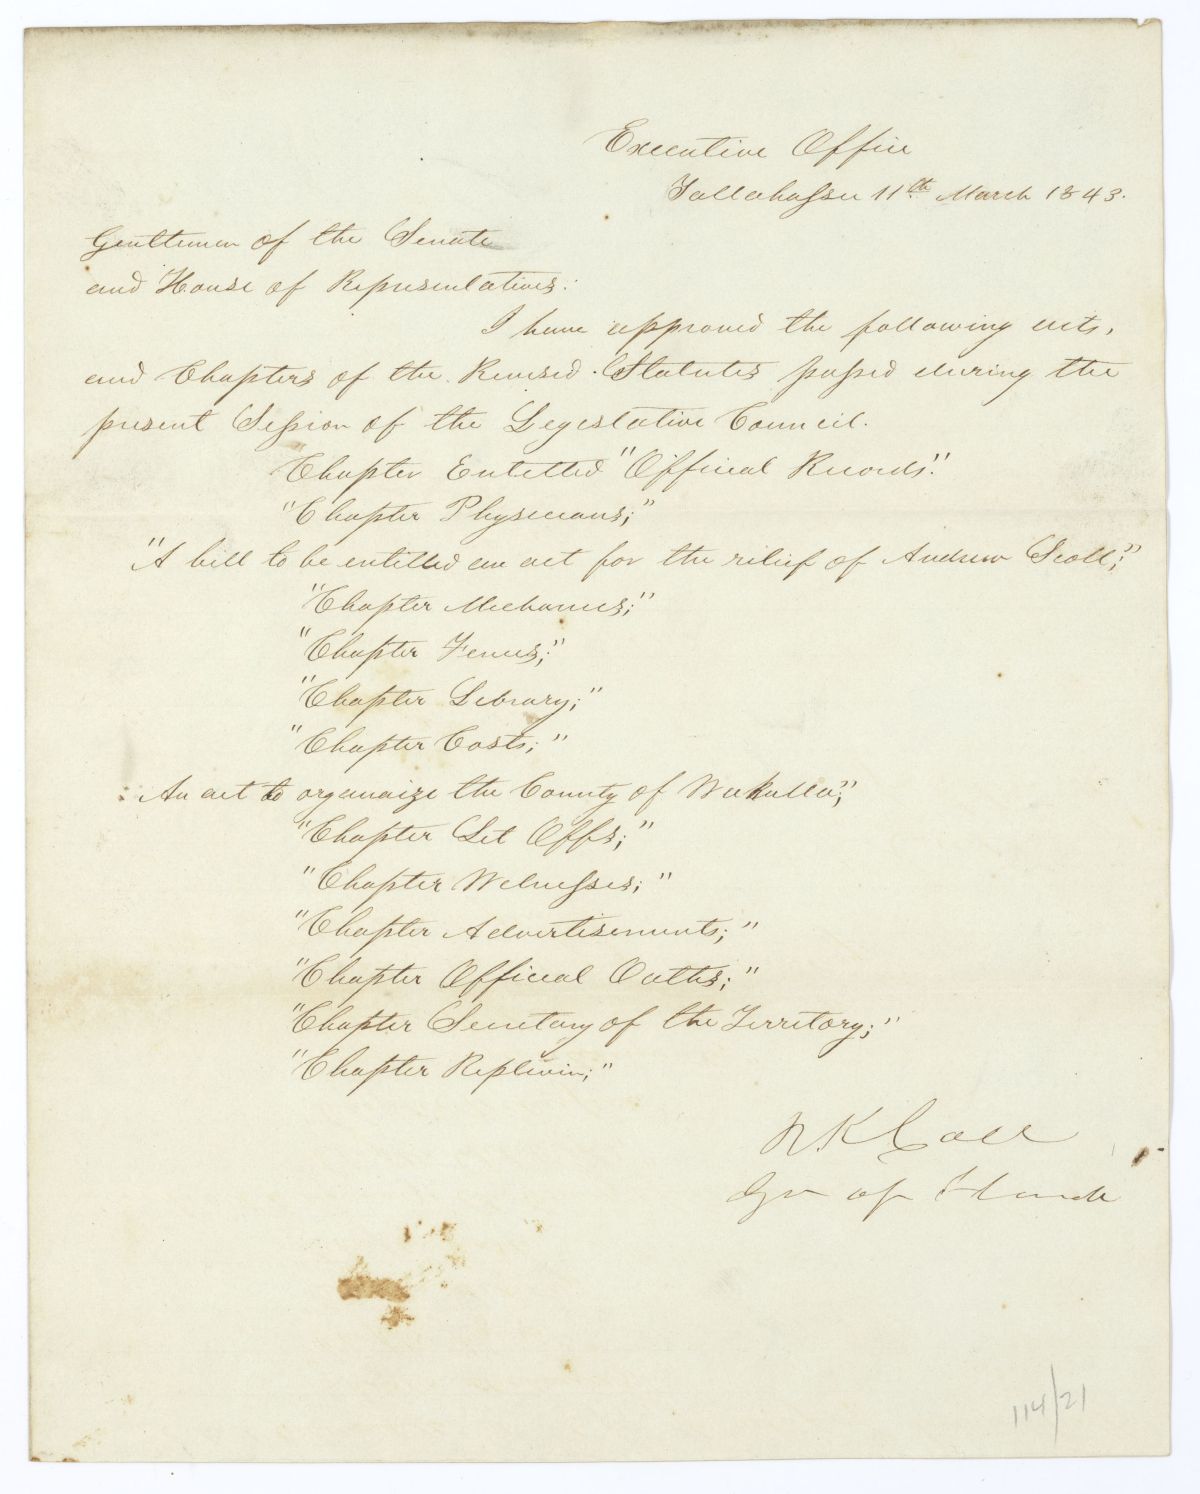 Executive Office
Tallahassee 11th March 1843.
Gentlemen of the Senate
and House of Representatives:
I have approved the following acts,
and Chapters of the Revised Statutes passed during the
present Session of the Legislative Council.
Chapter Entitled "Official Records."
"Chapter Physicians;"
"A bill to be entitled an act for the relief of Andrew Scott;"
"Chapter Mechanics;"
"Chapter Fences;"
"Chapter Library;"
"Chapter Costs;"
"An act to organaize the County of Wakulla;"
"Chapter Set Offs;"
"Chapter Witnesses;"
"Chapter Advertisements;"
"Chapter Official Oaths;"
"Chapter Secretary of the Territory;"
"Chapter Replevin;"
R K Call
Gov of Florida
114/21